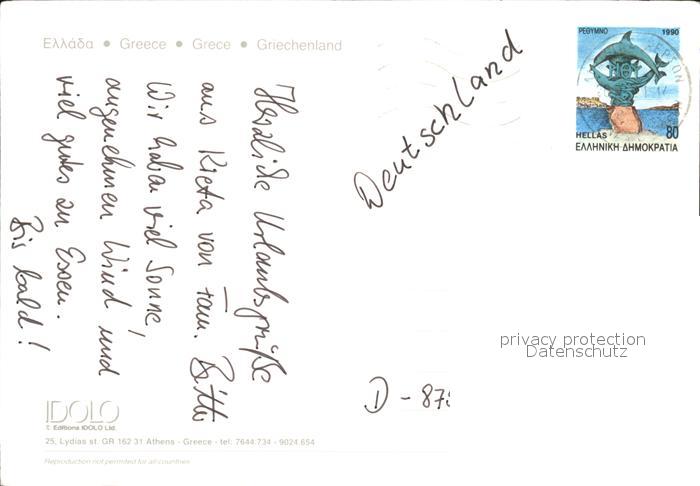 Ελλάδα • Greece • Grece • Griechenland
Herzliche Urlaubsgrüße
aus Kreta von Fam.
Wir haben viel Sonne,
angenehmen Wind und
viel gutes zu Essen.
Bis bald!
Deutschland
D - 87
ΡΕΘΥΜΝΟ 1990
HELLAS 80
ΕΛΛΗΝΙΚΗ ΔΗΜΟΚΡΑΤΙΑ
privacy protection
Datenschutz
IDOLO
Editions IDOLO Ltd.
25, Lydias st. GR 162 31 Athens - Greece - tel: 7644.734 - 9024.654
Reproduction not permited for all countries